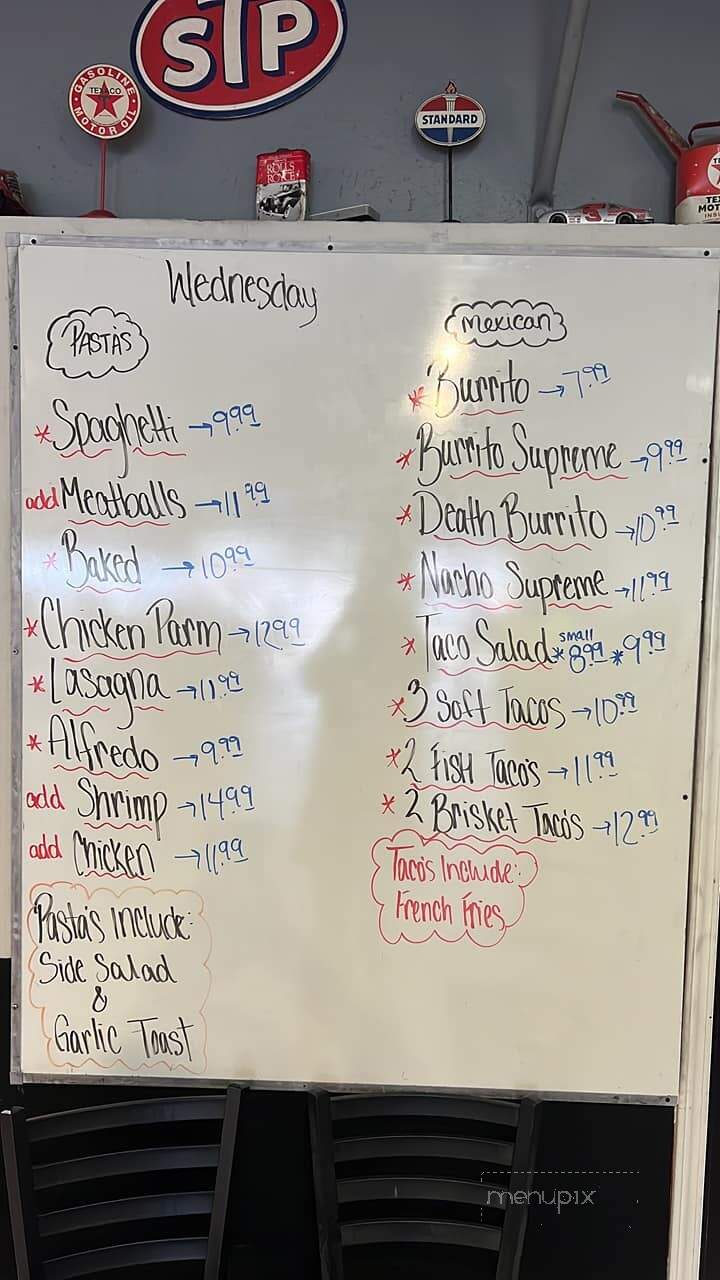 STP
GASOLINE
TEXACO
MOTOR OIL
STANDARD
ROLLS
ROYCE
3
Wednesday
PASTA'S
*Spaghetti →9.99
add Meatballs →11.99
*Baked →10.99
*Chicken Parm →12.99
*Lasagna →11.99
*Alfredo →9.99
add Shrimp →14.99
add Chicken →11.99
Pasta's Include:
Side Salad
&
Garlic Toast
Mexican
*Burrito →7.99
*Burrito Supreme →9.99
*Death Burrito →10.99
*Nacho Supreme →11.99
*Taco Salad *small 8.99 *9.99
*3 Soft Tacos →10.99
*2 Fish Taco's →11.99
*2 Brisket Taco's →12.99
Taco's Include:
French Fries
menupix